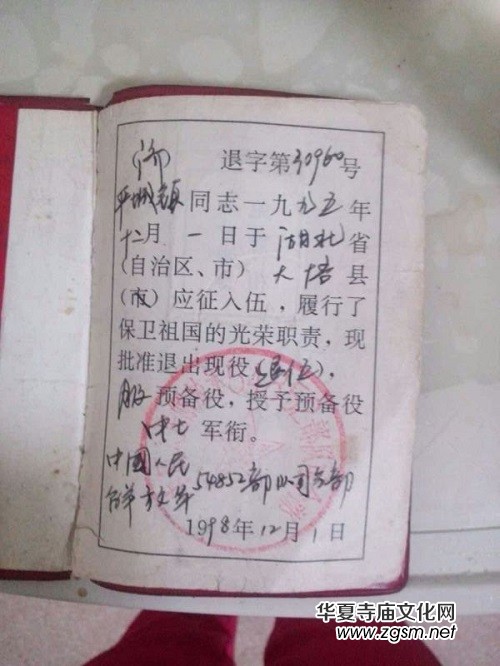 (济) 退字第30960号
同志一九九五年
十二月一日于湖北省
(自治区、市)大悟县
(市)应征入伍,履行了
保卫祖国的光荣职责,现
批准退出现役(退伍),
服预备役,授予预备役
中士军衔。
中國人民
解放军54852部队司令部
1998年12月1日
华夏寺庙文化网
www.zgsm.net